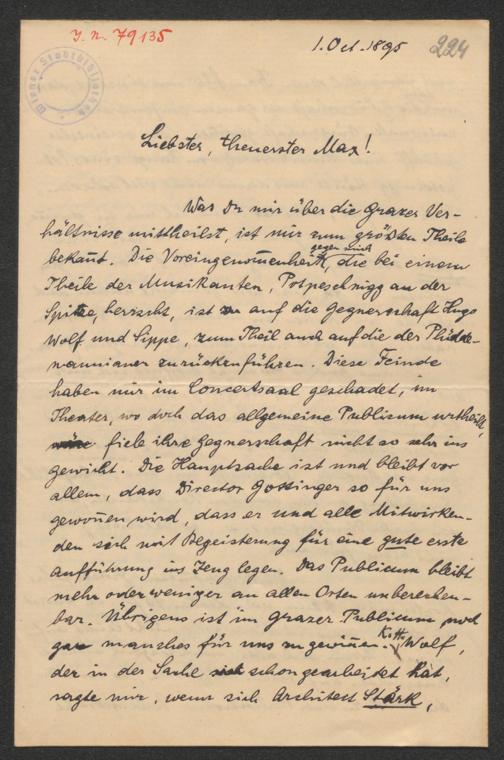 J. N. 79135
1. Oct. 1895
224
Wiener Stadtbibliothek
Liebster, theuerster Max!
Was Du mir über die Grazer Ver-
hältnisse mittheilst, ist mir zum größten Theile
bekannt. Die Voreingenommenheit gegen mich, die bei einem
Theile der Musikanten, Potpeschnigg an der
Spitze, herrscht, ist auf die Gegnerschaft Hugo
Wolf und Sippe, zum Theil auch auf die der Plüdde-
mannianer zurückzuführen. Diese Feinde
haben mir im Concertsaal geschadet, im
Theater, wo doch das allgemeine Publicum urtheilt,
fiele ihre Gegnerschaft nicht so sehr ins
gewicht. Die Hauptsache ist und bleibt vor
allem, dass Director Gottinger so für uns
gewonnen wird, dass er und alle Mitwirken-
den sich mit Begeisterung für eine gute erste
Aufführung ins Zeug legen. Das Publicum bleibt
mehr oder weniger an allen Orten unberechen-
bar. Übrigens ist im Grazer Publicum noch
gar manches für uns zu gewinnen. Wolf,
der in der Sache schon gearbeitet hat,
sagte mir, wenn sich Architect Stärk,